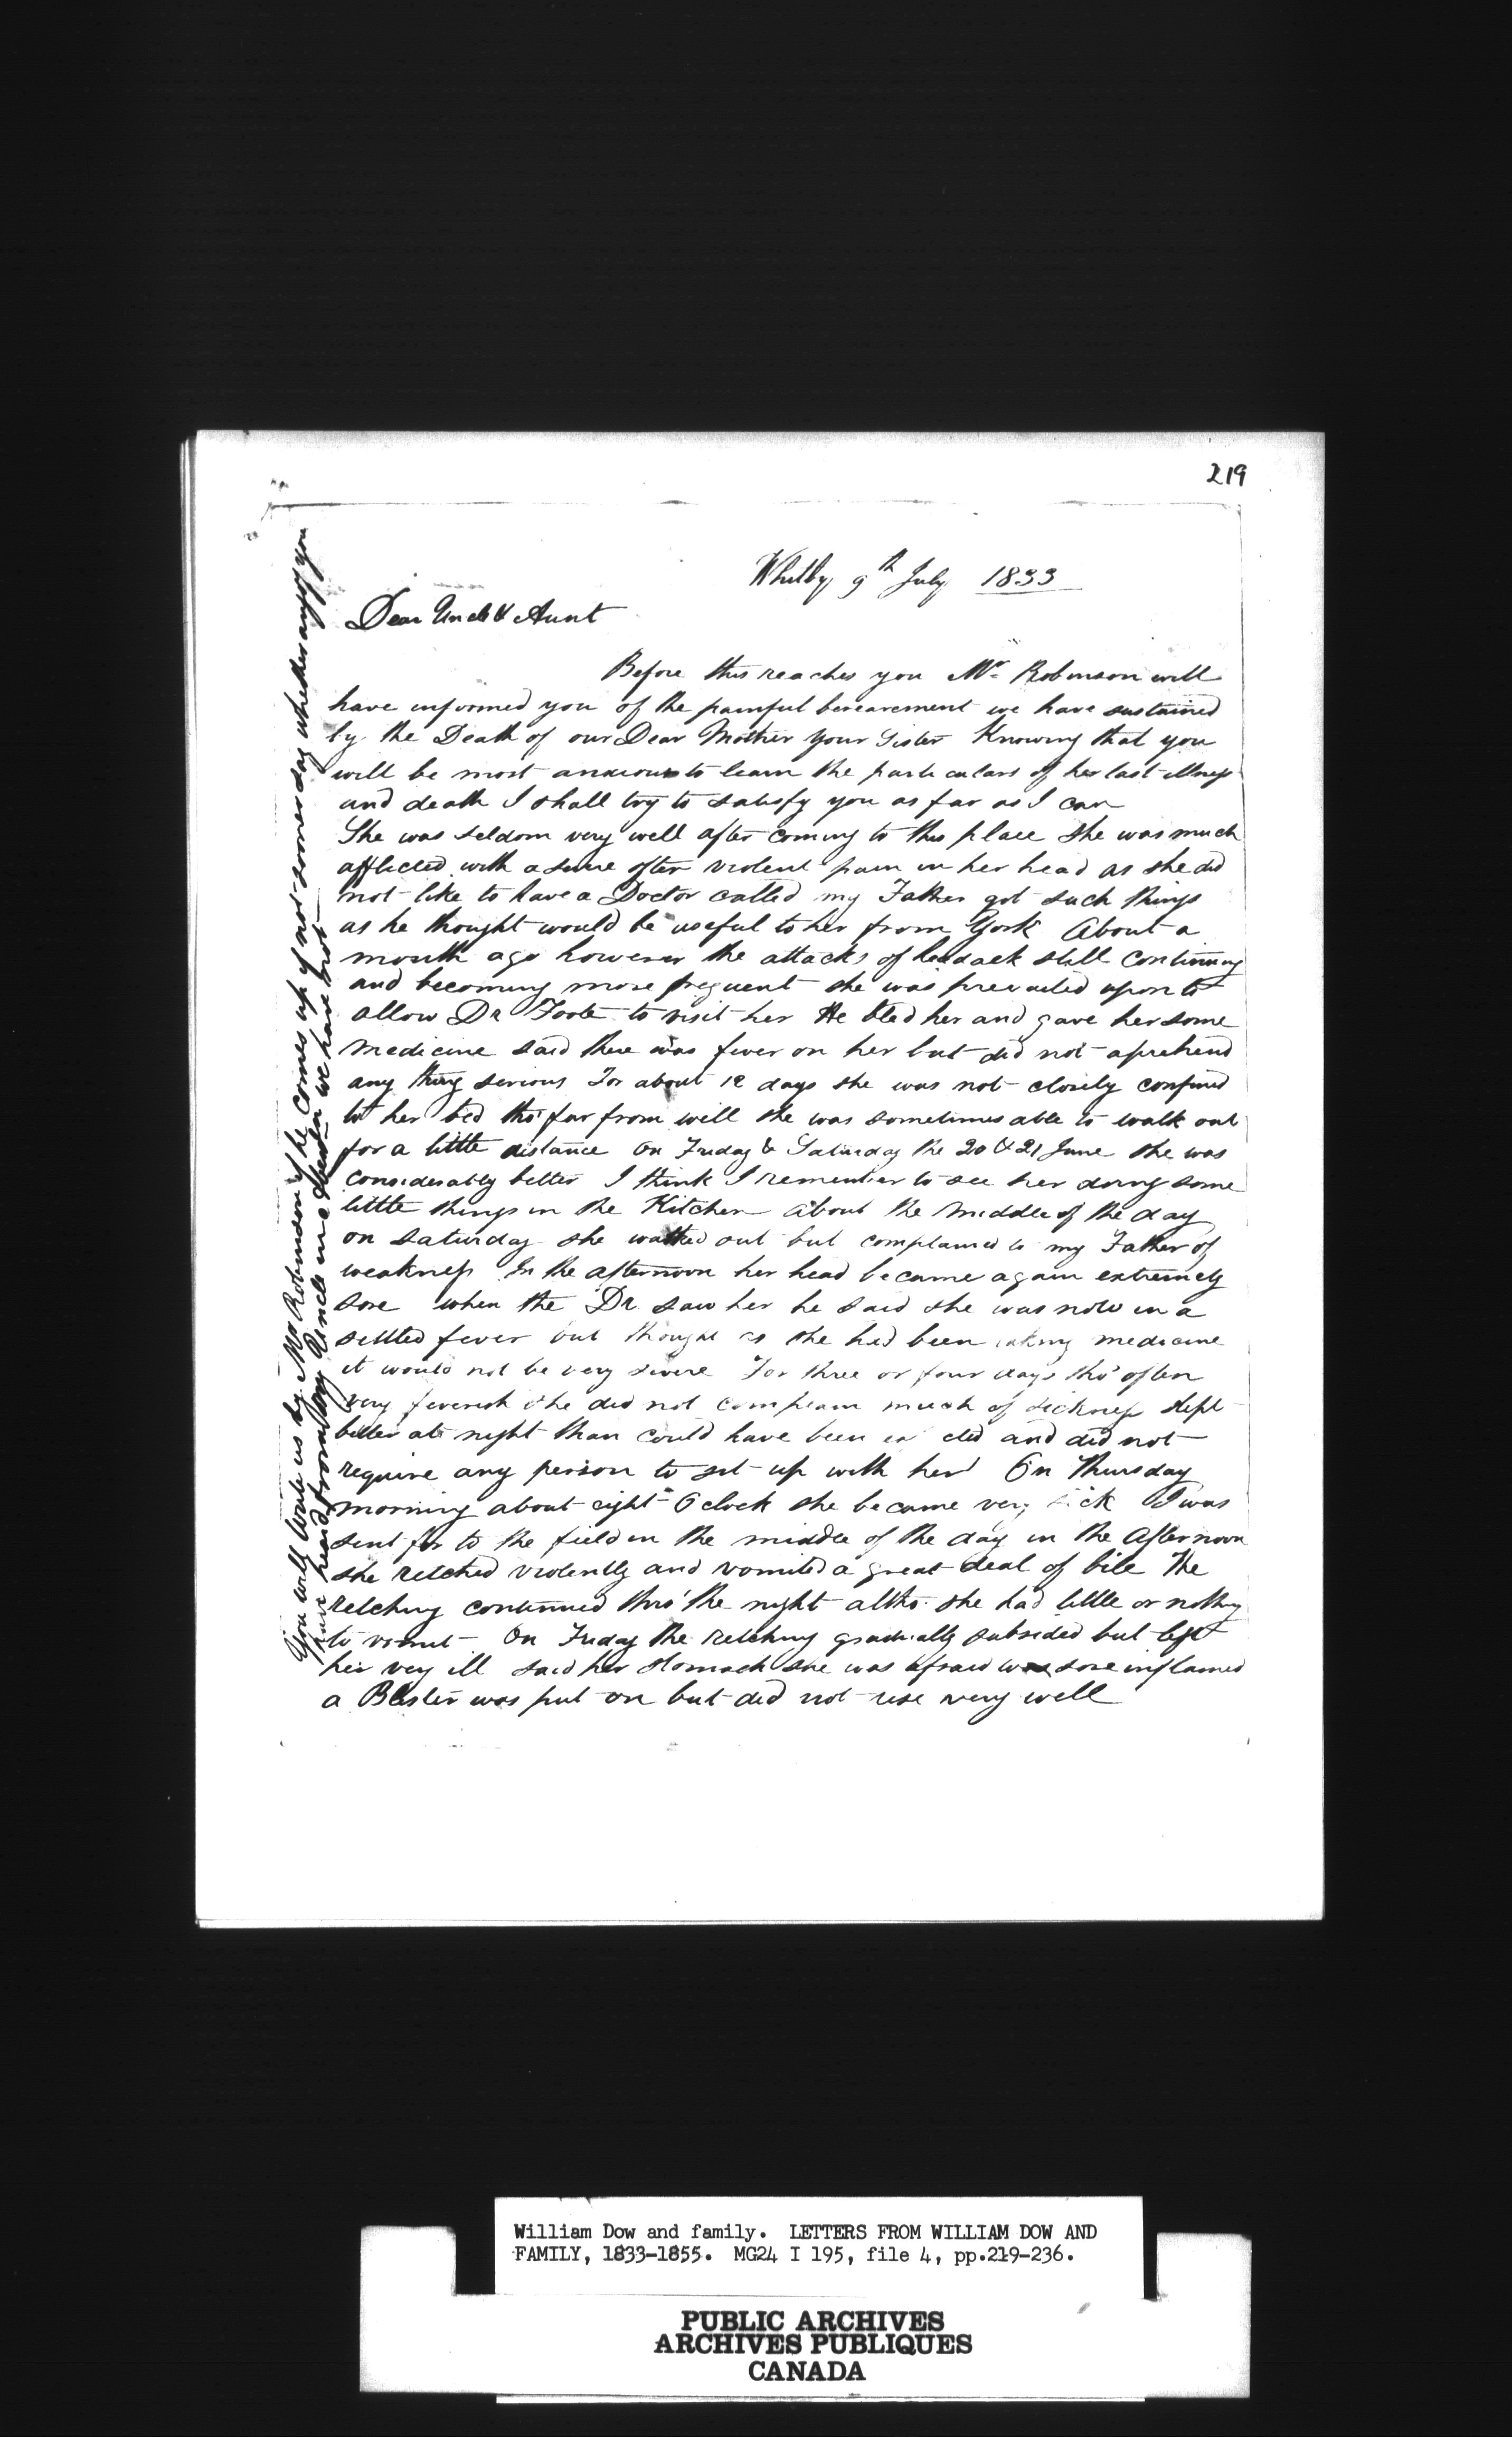 219
Whitby 9th July 1833
Dear Uncle & Aunt
Before this reaches you Mr Robinson will
have informed you of the painful bereavement we have sustained
by the Death of our Dear Mother your Sister Knowing that you
will be most anxious to learn the particulars of her last illness
and death I shall try to satisfy you as far as I can
She was seldom very well after coming to this place She was much
afflicted with a severe often violent pain in her head as she did
not like to have a Doctor called my Father got such things
as he thought would be useful to her from York About a
month ago however the attacks of headack still continuing
and becoming more frequent she was prevailed upon to
allow Dr Foote to visit her He bled her and gave her some
medicine said there was fever on her but did not aprehend
any thing serious For about 12 days she was not closely confined
to her bed tho' far from well she was sometimes able to walk out
for a little distance On Friday & Saturday the 20 & 21 June she was
considerably better I think I remember to see her doing some
little things in the Kitchen About the middle of the day
on Saturday she walked out but complained to my Father of
weakness In the afternoon her head became again extremely
sore when the Dr saw her he said she was now in a
settled fever but thought as she had been taking medicine
it would not be very severe For three or four days tho' often
very feverish she did not complain much of sickness slept
better at night than could have been cted and did not
require any person to set up with her On Thursday
morning about eight O clock she became very sick I was
sent for to the field in the middle of the day in the afternoon
she retched violently and vomited a great deal of bile The
retching continued thro' the night altho. she had little or nothing
to vomit On Friday the retching gradually subsided but left
her very ill said her stomach she was afraid was sore inflamed
a Blister was put on but did not rise very well
You will write us by Mr Robinson if he comes up if not some day whether any of you
have heard from my Uncle we have not
William Dow and family. LETTERS FROM WILLIAM DOW AND
FAMILY, 1833-1855. MG24 I 195, file 4, pp.219-236.
PUBLIC ARCHIVES
ARCHIVES PUBLIQUES
CANADA